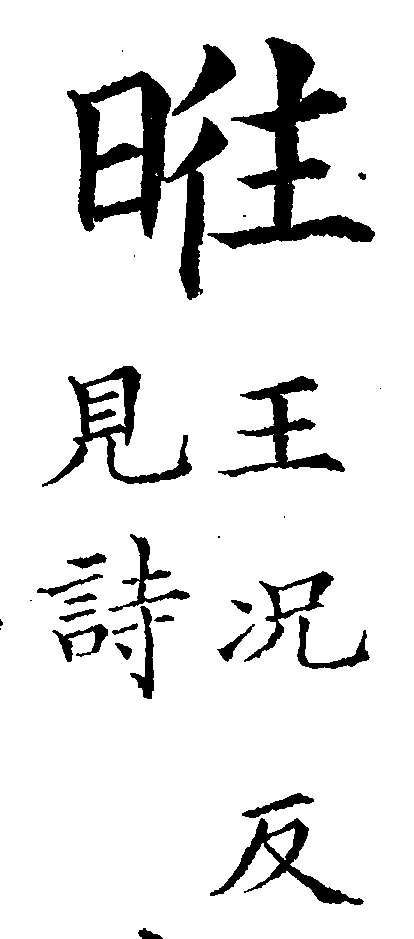 暀
王况反
見詩